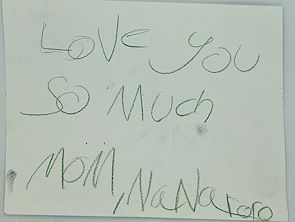 LOVE YOU
SO MUCH
MOM, NANA roro